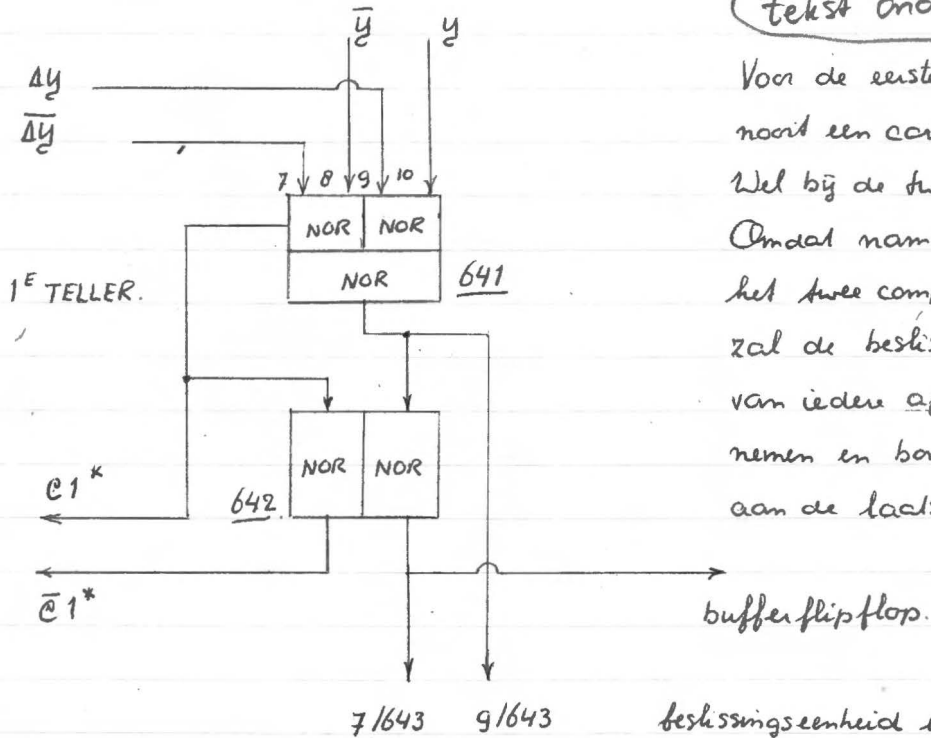 y̅ y
tekst ond
Δy
Δ̅y̅
Voor de eerste
nooit een car
Wel bij de tw
Omdat nam
het twee comp
zal de besliss
van iedere ap
nemen en bo
aan de laats
7 8 9 10
NOR NOR
NOR 641
1E TELLER.
NOR NOR
642
C1*
C̅1*
bufferflipflop.
7/643 9/643 beslissingseenheid